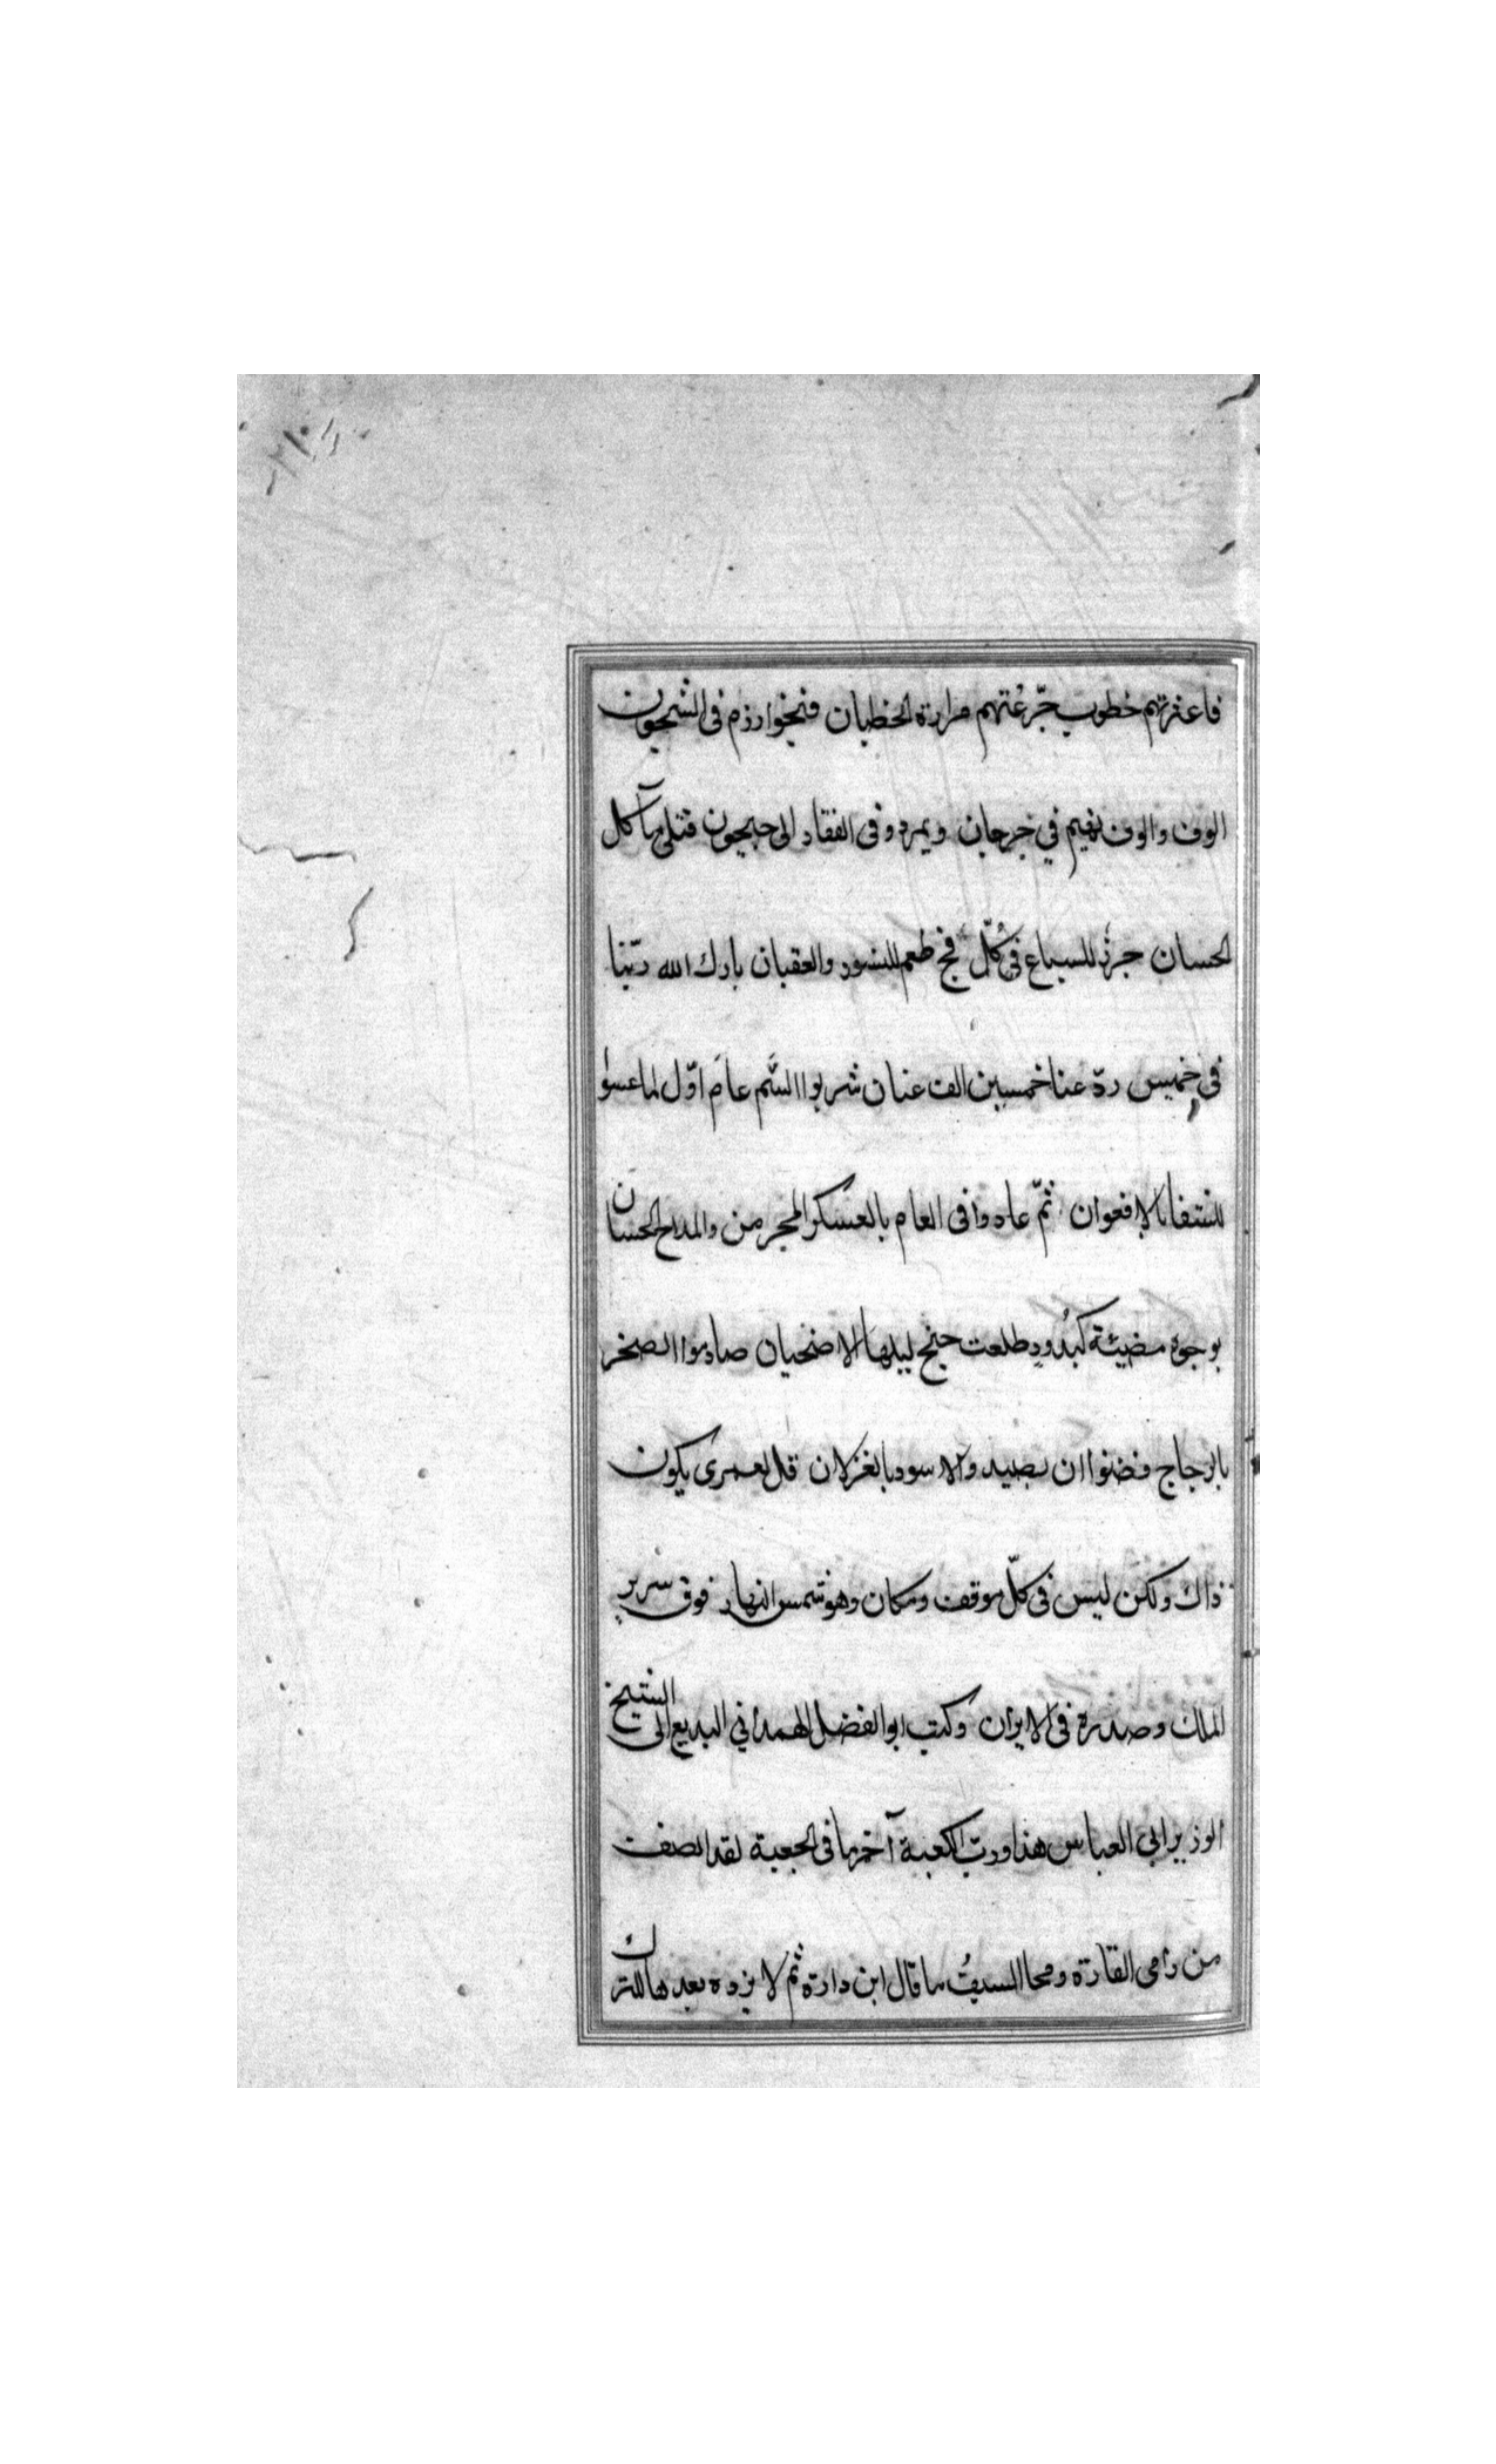 فاعترتهم خطوب جرّعتهم مرارة الخطبان فبخوارزم فى الشجون
الوف والوف بهيم في جرجان وبمرو وفى القفار الى جيحون قتلى مآكل
الحسان جزر للسباع فى كلّ فج طعم للنسور والعقبان بارك الله ربّنا
فى خميس ردّ عنا خمسين الف عنان شربوا السّم عام اوّل لما عسوا
كالافعوان ثمّ عادوا فى العام بالعسكر المجر من والمدح الحسان
بوجوه مضيئة كبُدور طلعت جنح ليلها الاضحيان صادموا الصخر
بالزجاج فضنوا ان بصيد والاسود بالغزلان قل لعمرى يكون
ذاك ولكن ليس فى كلّ موقف ومكان وهو شمس النهار فوق سرير
الملك وصدره فى الايوان وكتب ابو الفضل الهمداني البديع الى الشيخ
الوزير ابي العباس هذا وربّ الكعبة آخر ما فى الجعبة لقد انصف
من رامى القارة ومحا السيفُ ما قال ابن دارة ثم لا نزوه بعدها للترك